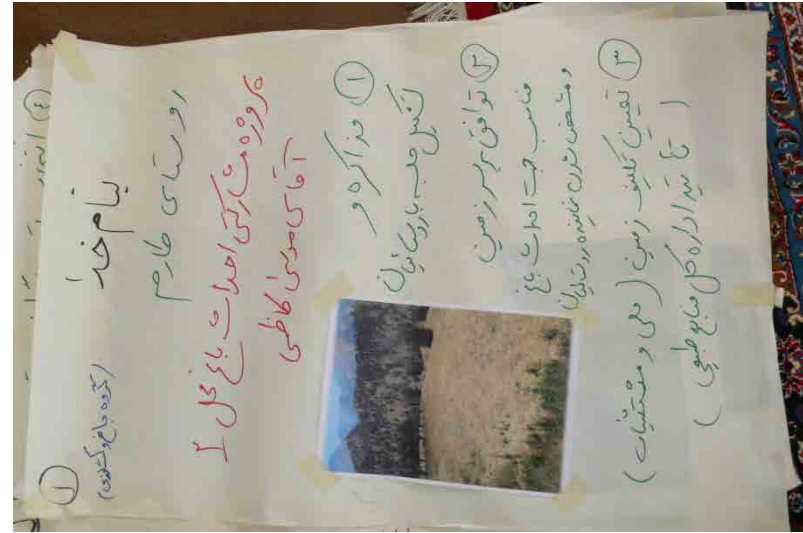 بنام خدا
(گروه باغ و کشاورزی)
۱
روستای طارم
پروژه مشارکتی احداث باغ نخل ۲
آقای موسی کاظمی
۱ مذاکره و
تشکیل جلسه با روستائیان
۲ توافق بر سر زمین
مناسب جهت احداث باغ
و مشخص شدن نماینده روستائیان
۳ تعیین تکلیف زمین (ملی و مستثنیات)
(تائیدیه اداره کل منابع طبیعی)
۴